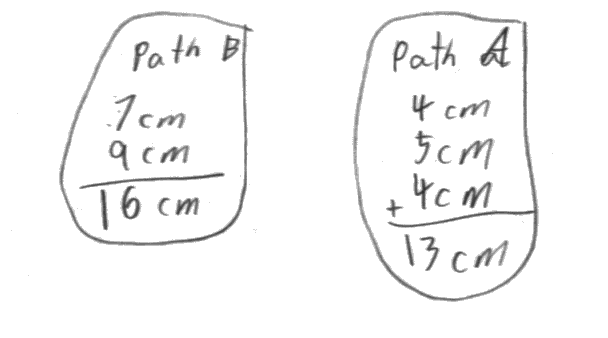 Path B
7cm
9cm
16 cm
Path A
4 cm
5cm
+ 4cm
13 cm